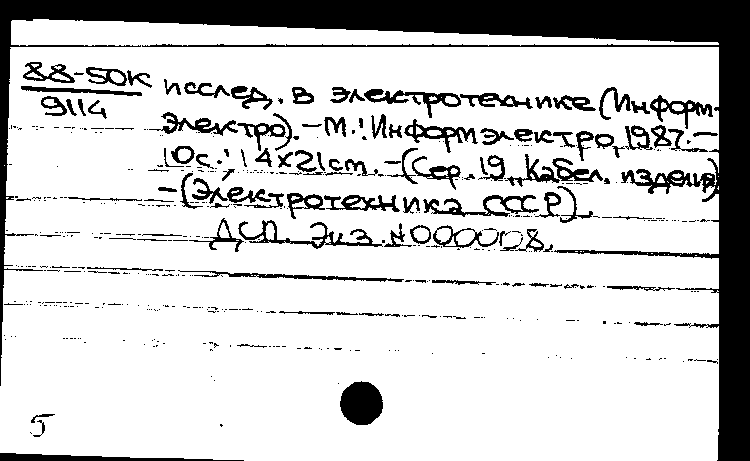 88-50К
9114
исслед. в электротехнике (Информ-
электро). – М.: Информэлектро, 1987. –
10с.; 14х21cm. – (Сер. 19, Кабел. изделия)
– (Электротехника СССР).
ДСП. Экз. №000008.
5